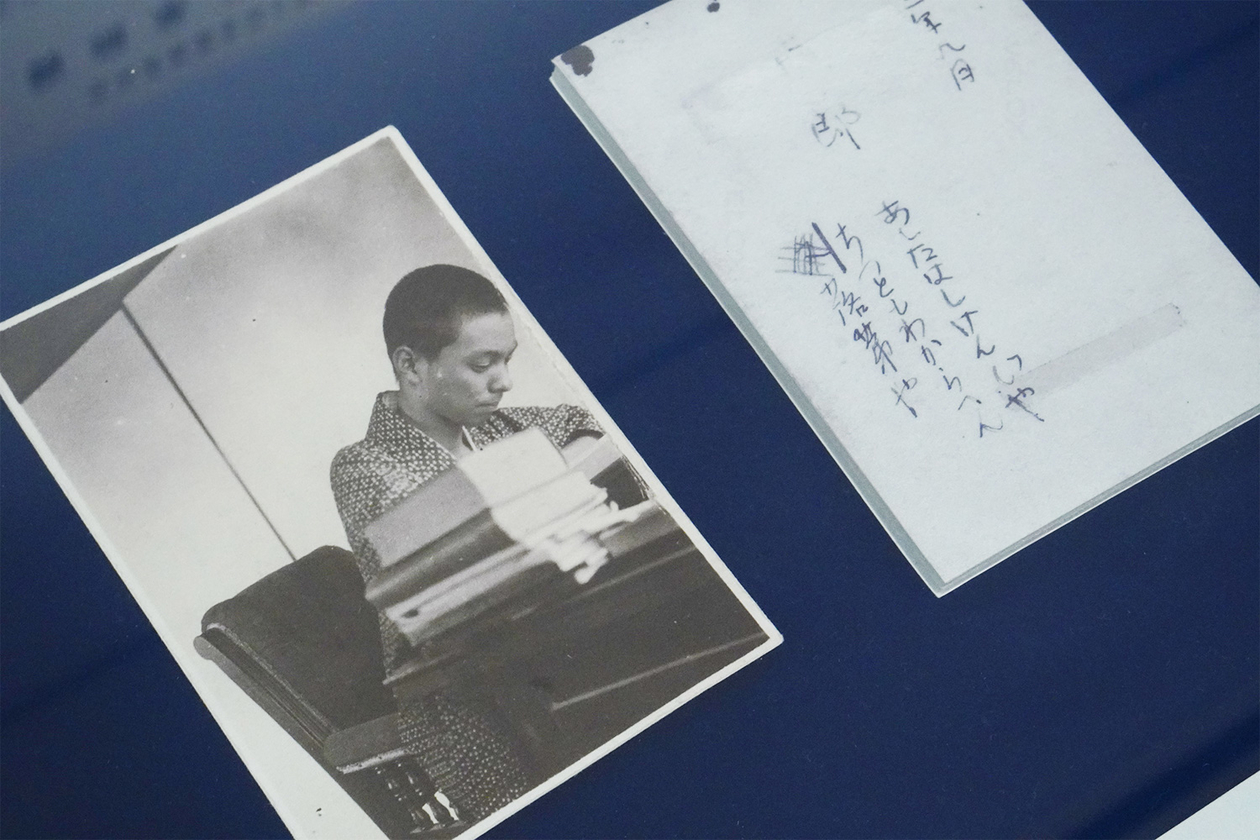 年 月
郎
あしたはしけんじや
ちっともわからへん
落第や